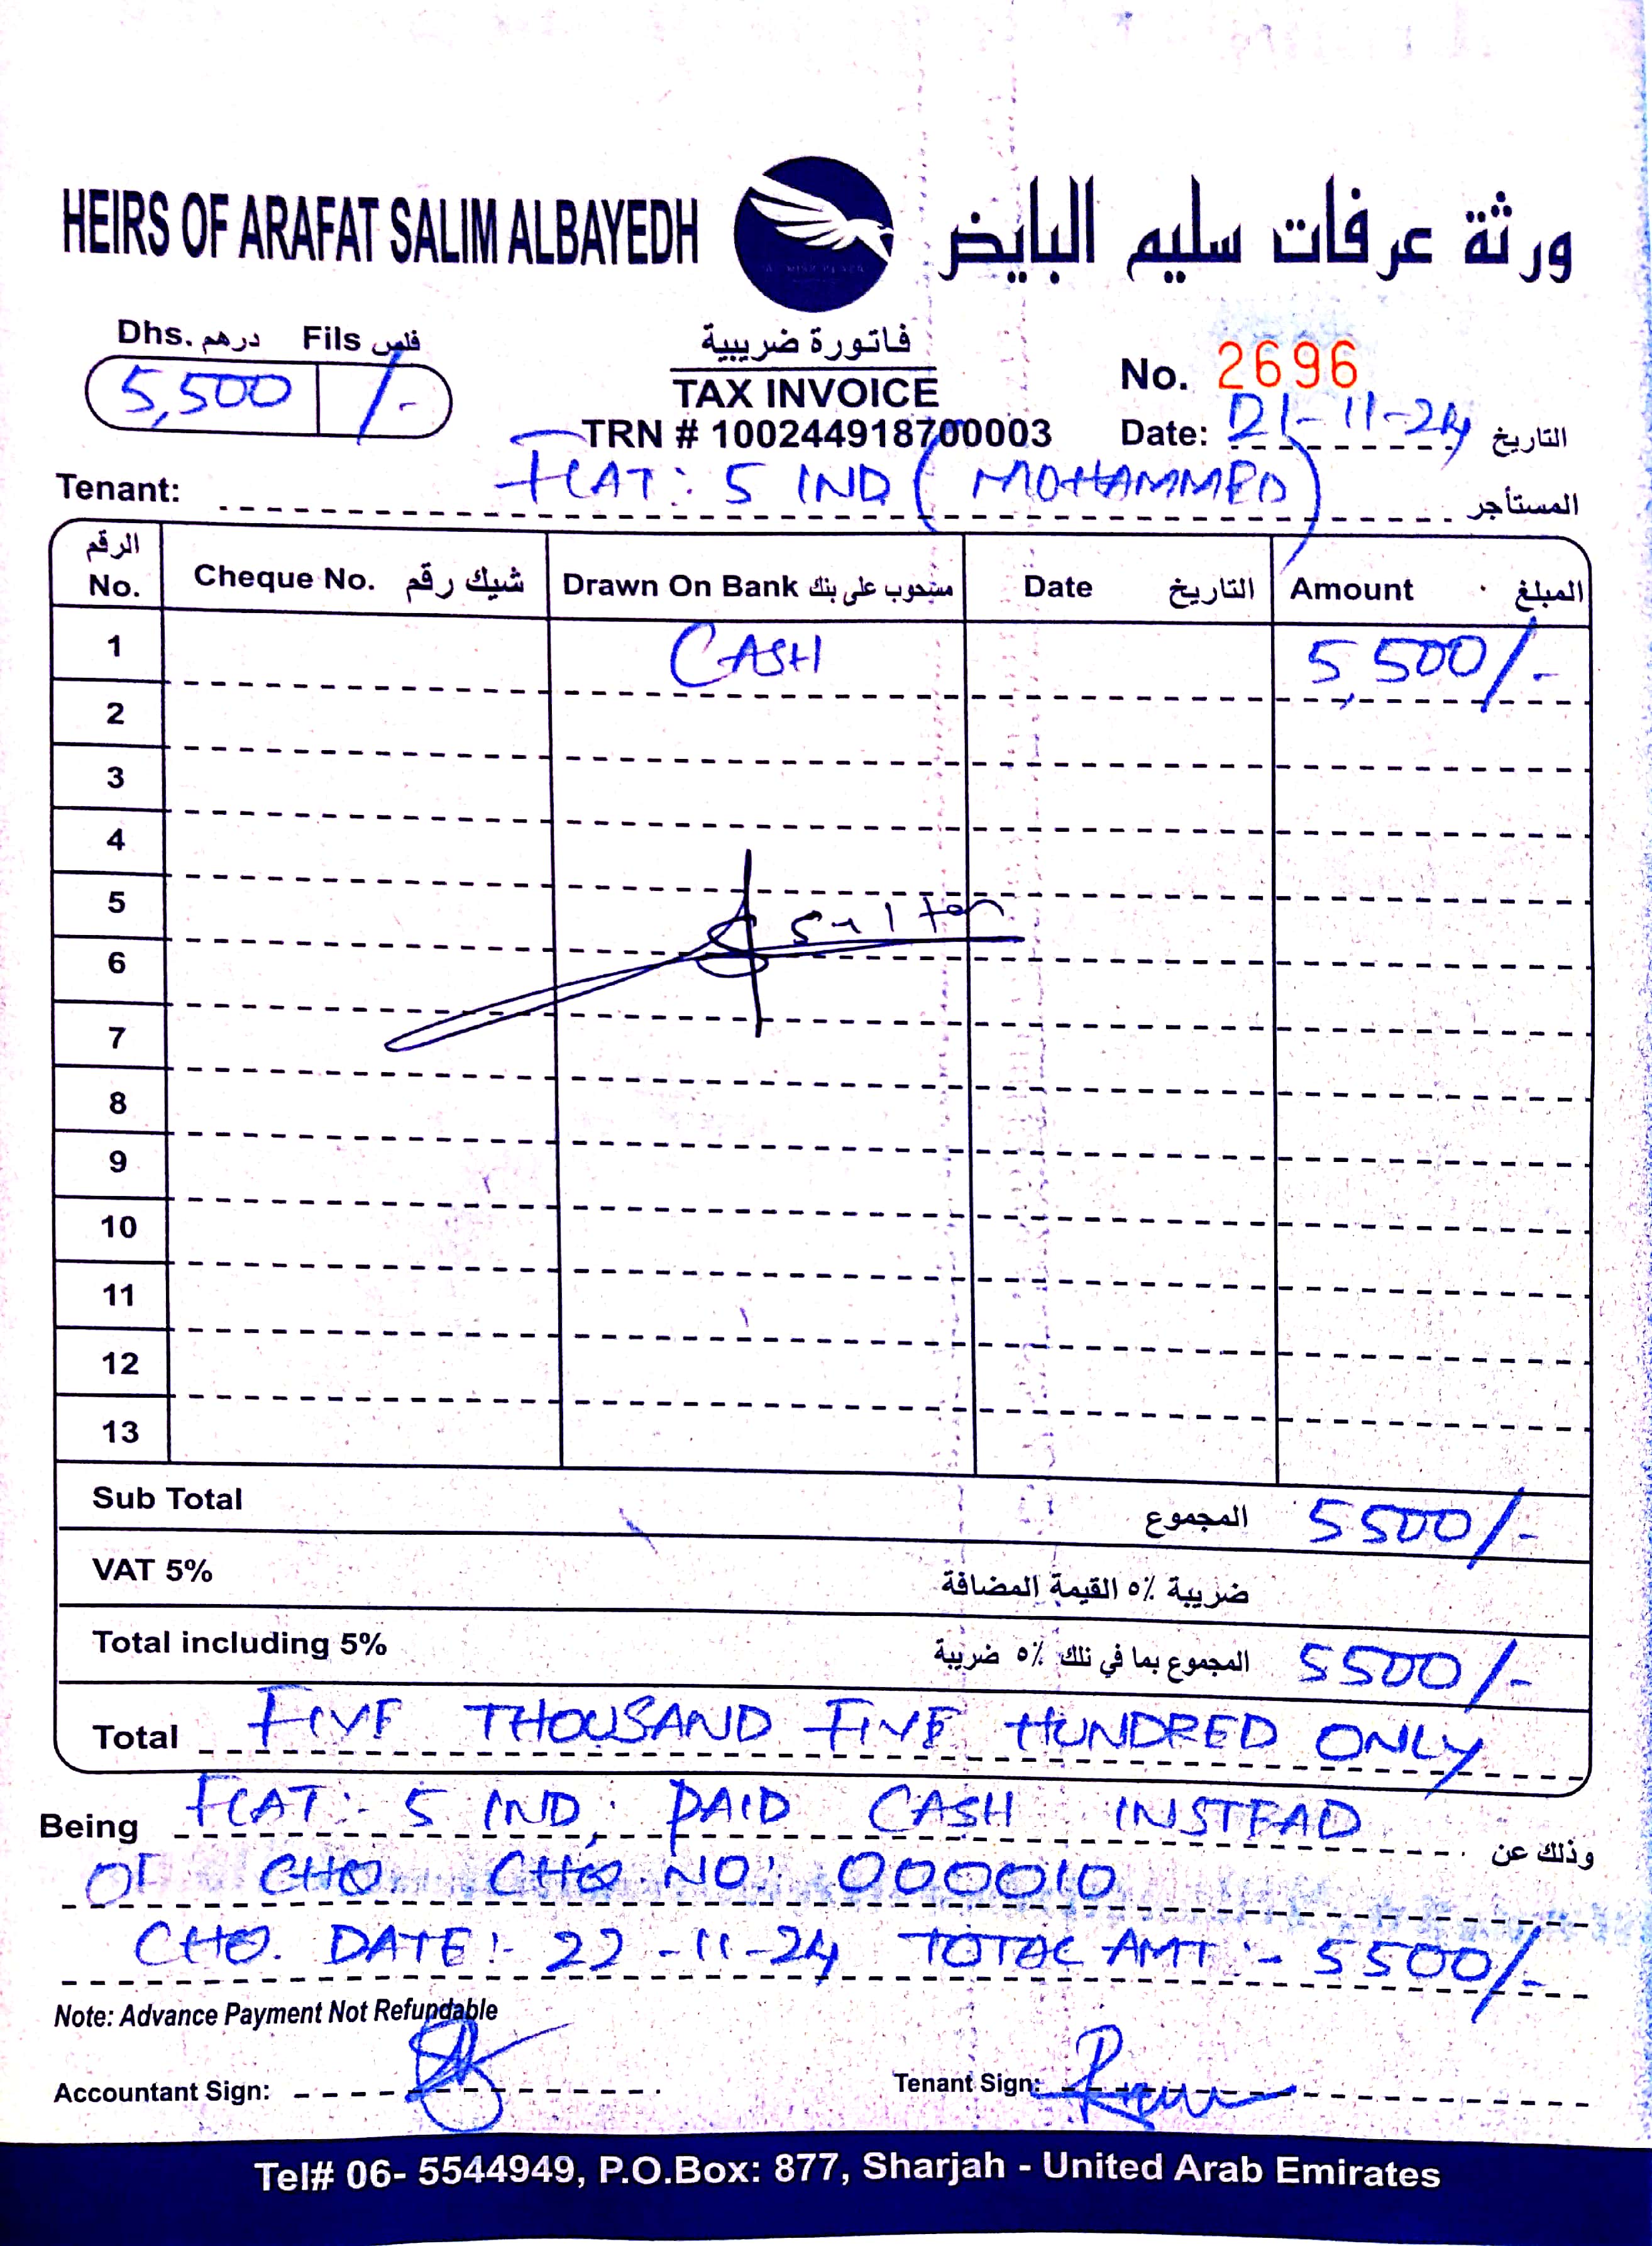 HEIRS OF ARAFAT SALIM ALBAYEDH
ورثة عرفات سليم البايض
Dhs. درهم Fils فلس
5,500 /-
فاتورة ضريبية
TAX INVOICE
TRN # 100244918700003
No. 2696
Date: 21-11-24 التاريخ
Tenant: FLAT: 5 IND (MOHAMMED) المستأجر
الرقم No. Cheque No. شيك رقم Drawn On Bank مسحوب على بنك Date التاريخ Amount المبلغ
1 CASH 5,500/-
2
3
4
5
6
7
8
9
10
11
12
13
Sub Total المجموع 5500/-
VAT 5% ضريبة ٥٪ القيمة المضافة
Total including 5% المجموع بما في ذلك ٥٪ ضريبة 5500/-
Total FIVE THOUSAND FIVE HUNDRED ONLY
Being FLAT:- 5 IND, PAID CASH INSTEAD وذلك عن
OF CHQ. CHQ. NO: 000010
CHQ. DATE:- 22-11-24 TOTAL AMT:- 5500/-
Note: Advance Payment Not Refundable
Accountant Sign: Tenant Sign:
Tel# 06- 5544949, P.O.Box: 877, Sharjah - United Arab Emirates